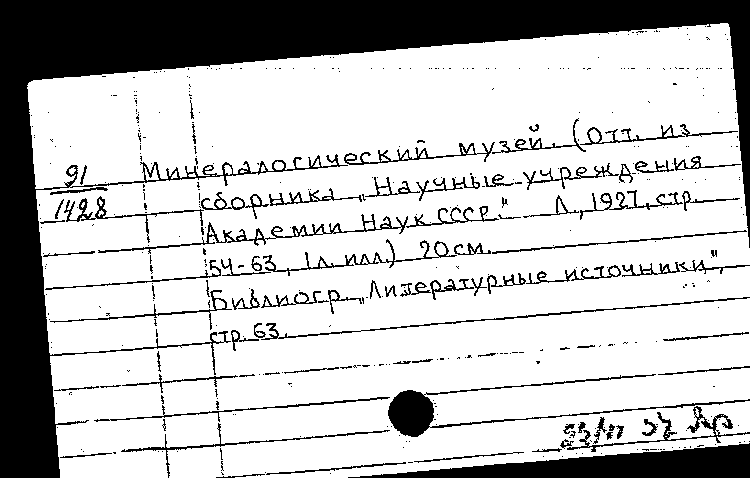 91
1428
Минералогический музей. (Отт. из
сборника „Научные учреждения
Академии Наук СССР." Л., 1927, стр.
54-63, 1 л. илл.) 20 см.
Библиогр. „Литературные источники",
стр. 63.